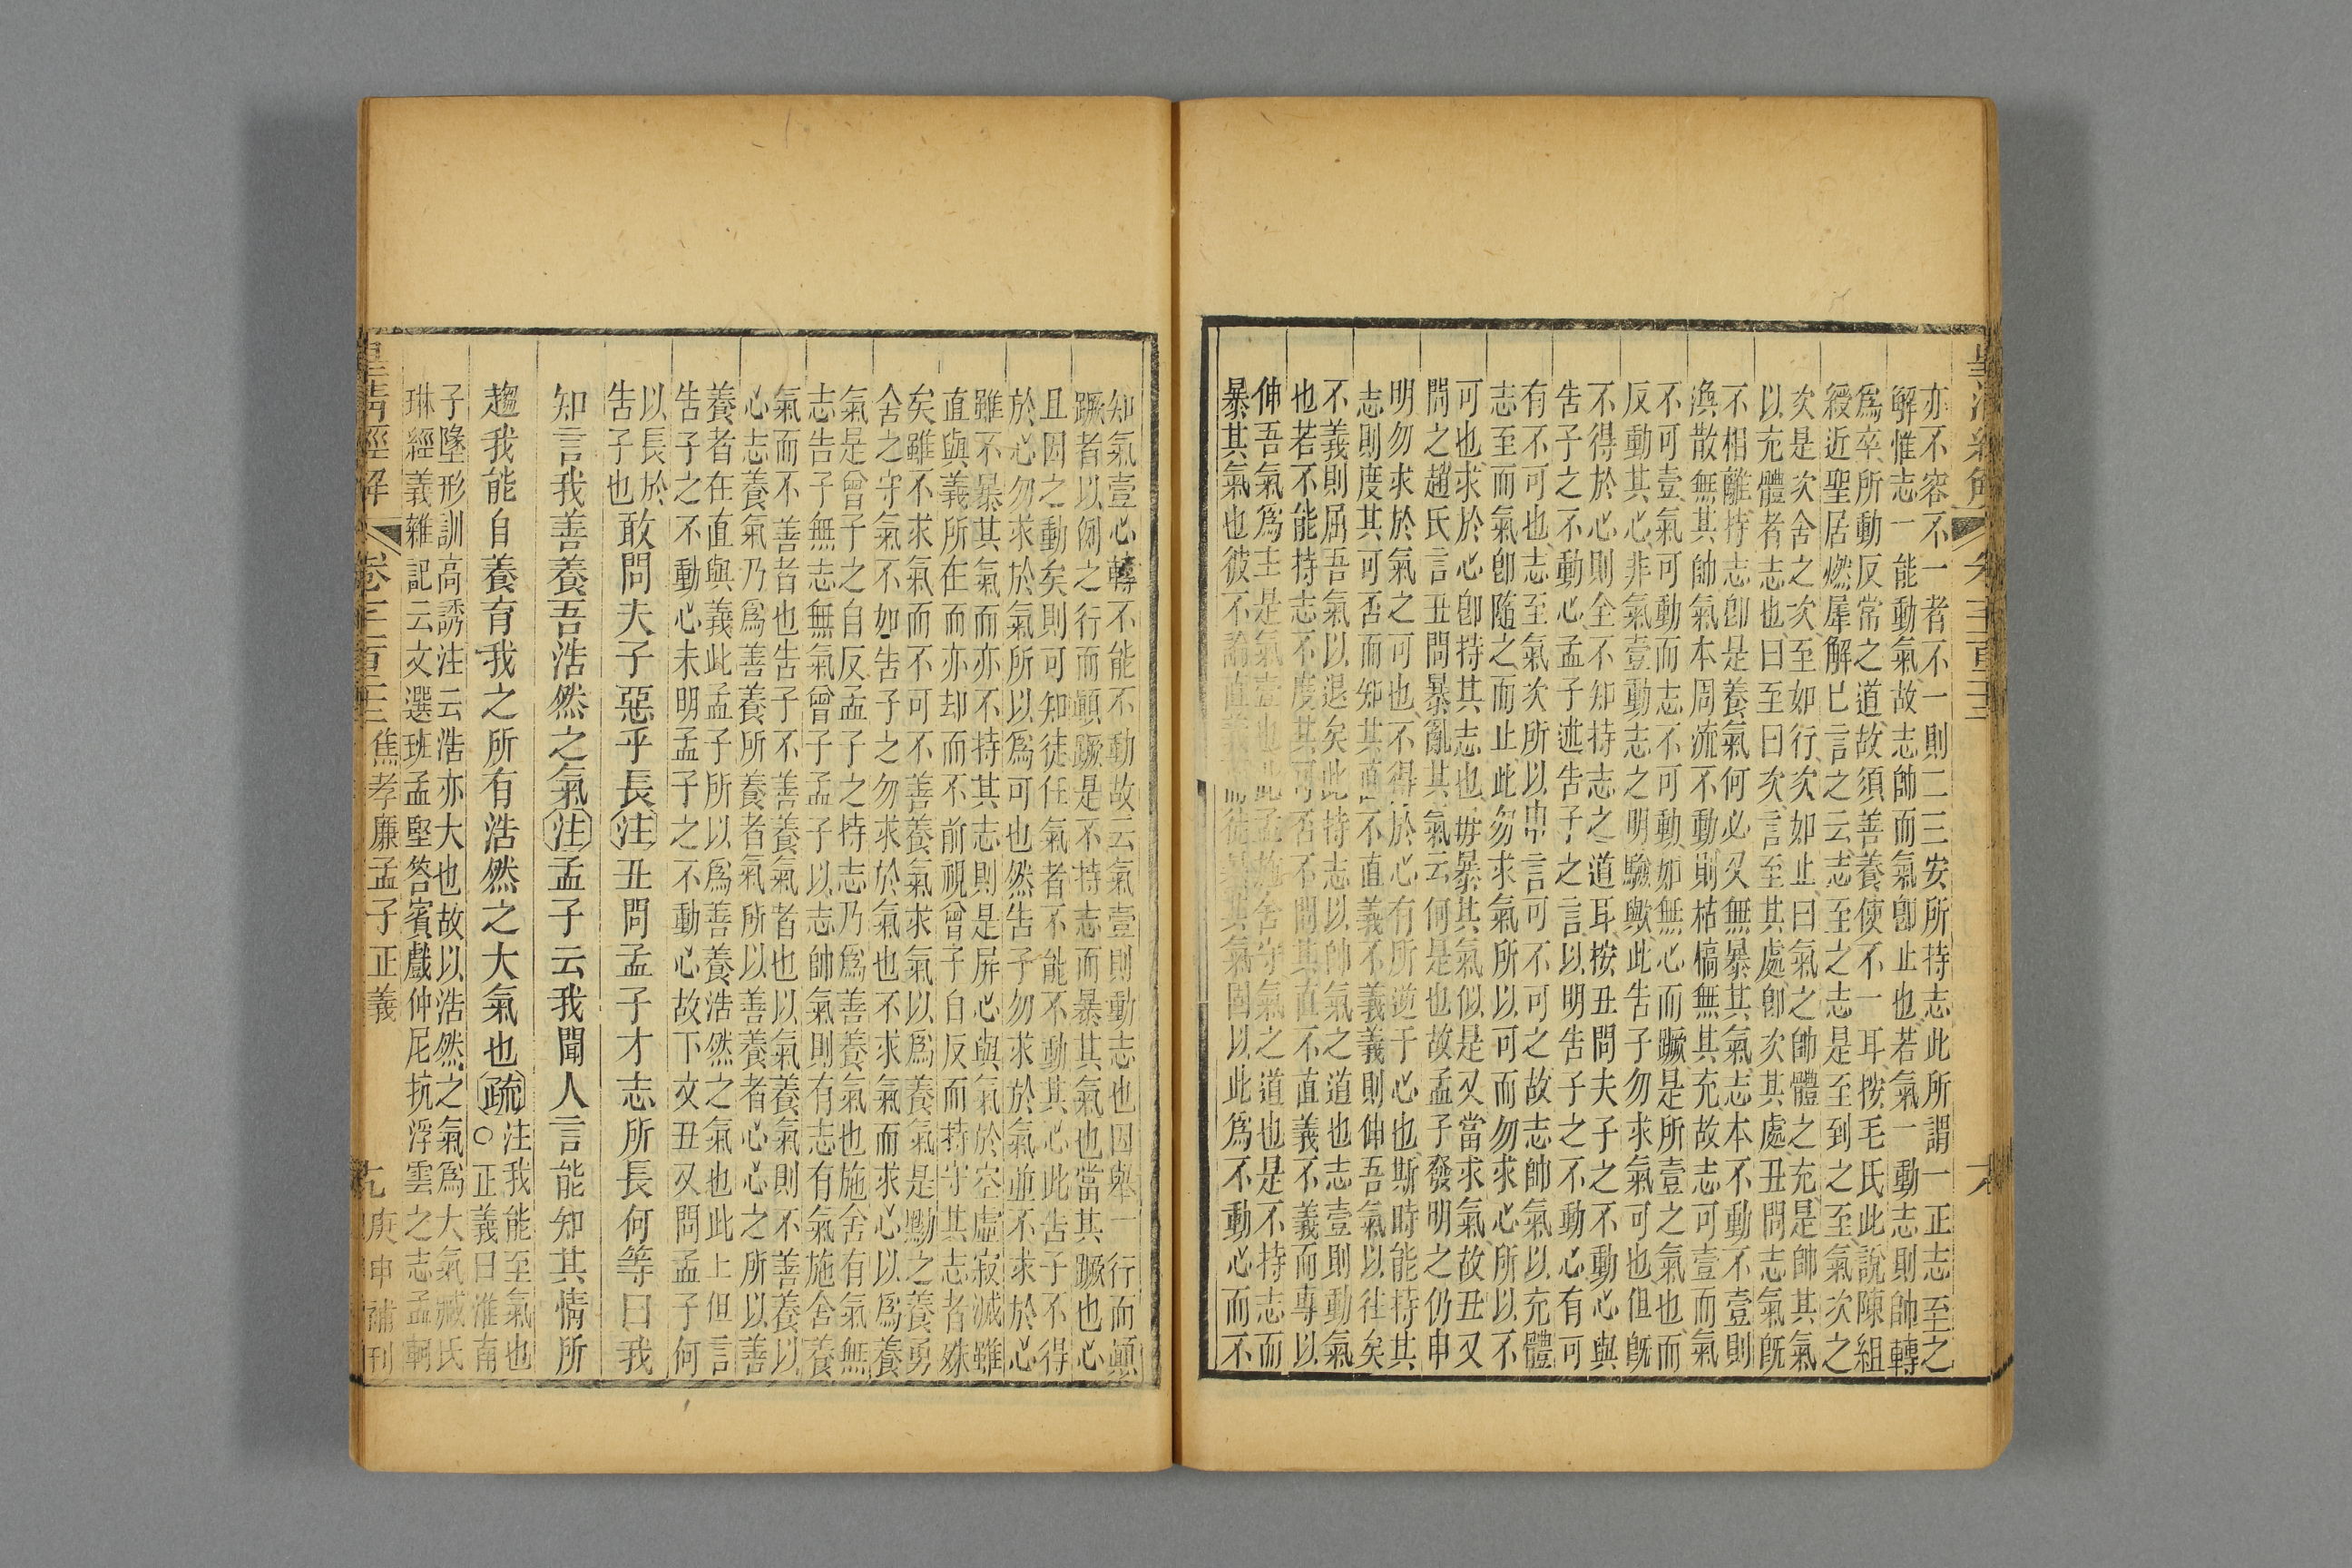 亦不容不一者不一則二三安所持志此所謂一正志至之
解惟志一能動氣故志帥而氣卽止也若氣一動志則帥轉
爲卒所動反常之道故須善養使不一耳按毛氏此說陳組
綬近聖居燃犀解已言之云志至之志是至到之至氣次之
次是次舍之次至如行次如止曰氣之帥體之充是帥其氣
以充體者志也曰至曰次言至其處卽次其處丑問志氣旣
不相離持志卽是養氣何必又無暴其氣志本不動不壹則
渙散無其帥氣本周流不動則枯槁無其充故志可壹而氣
不可壹氣可動而志不可動如無心而蹶是所壹之氣也而
反動其心非氣壹動志之明驗歟此告子勿求氣可也但旣
不得於心則全不知持志之道耳按丑問夫子之不動心與
告子之不動心孟子述告子之言以明告子之不動心有可
有不可也志至氣次所以申言可不可之故志帥氣以充體
志至而氣卽隨之而止此勿求氣所以可而勿求心所以不
可也求於心卽持其志也毋暴其氣似是又當求氣故丑又
問之趙氏言丑問暴亂其氣云何是也故孟子發明之仍申
明勿求於氣之可也不得於心有所逆于心也斯時能持其
志則度其可否而知其直不直義不義義則伸吾氣以往矣
不義則屈吾氣以退矣此持志以帥氣之道也志壹則動氣
也若不能持志不度其可否不問其直不直義不義而專以
伸吾氣爲主是氣壹也此孟施舍守氣之道也是不持志而
暴其氣也彼不論直義而徒暴其氣固以此爲不動心而不
知氣壹心轉不能不動故云氣壹則動志也因舉一行而顚
蹶者以例之行而顚蹶是不持志而暴其氣也當其蹶也心
且因之動矣則可知徒任氣者不能不動其心此告子不得
於心勿求於氣所以爲可也然告子勿求於氣並不求於心
雖不暴其氣而亦不持其志則是屏心與氣於空虛寂滅雖
直與義所在而亦却而不前視曾子自反而持守其志者殊
矣雖不求氣而不可不善養氣求氣以爲養氣是黝之養勇
舍之守氣不如告子之勿求於氣也不求氣而求心以爲養
氣是曾子之自反孟子之持志乃爲善養氣也施舍有氣無
志告子無志無氣曾子孟子以志帥氣則有志有氣施舍養
氣而不善者也告子不善養氣者也以氣養氣則不善養以
心志養氣乃爲善養所養者氣所以善養者心心之所以善
養者在直與義此孟子所以爲善養浩然之氣也此上但言
告子之不動心未明孟子之不動心故下文丑又問孟子何
以長於
告子也敢問夫子惡乎長注丑問孟子才志所長何等曰我
知言我善養吾浩然之氣注孟子云我聞人言能知其情所
趨我能自養育我之所有浩然之大氣也疏注我能至氣也
○正義曰淮南
子墬形訓高誘注云浩亦大也故以浩然之氣爲大氣臧氏
琳經義雜記云文選班孟堅答賓戲仲尼抗浮雲之志孟軻
皇清經解 卷 焦孝廉孟子正義 九 庚申補刊